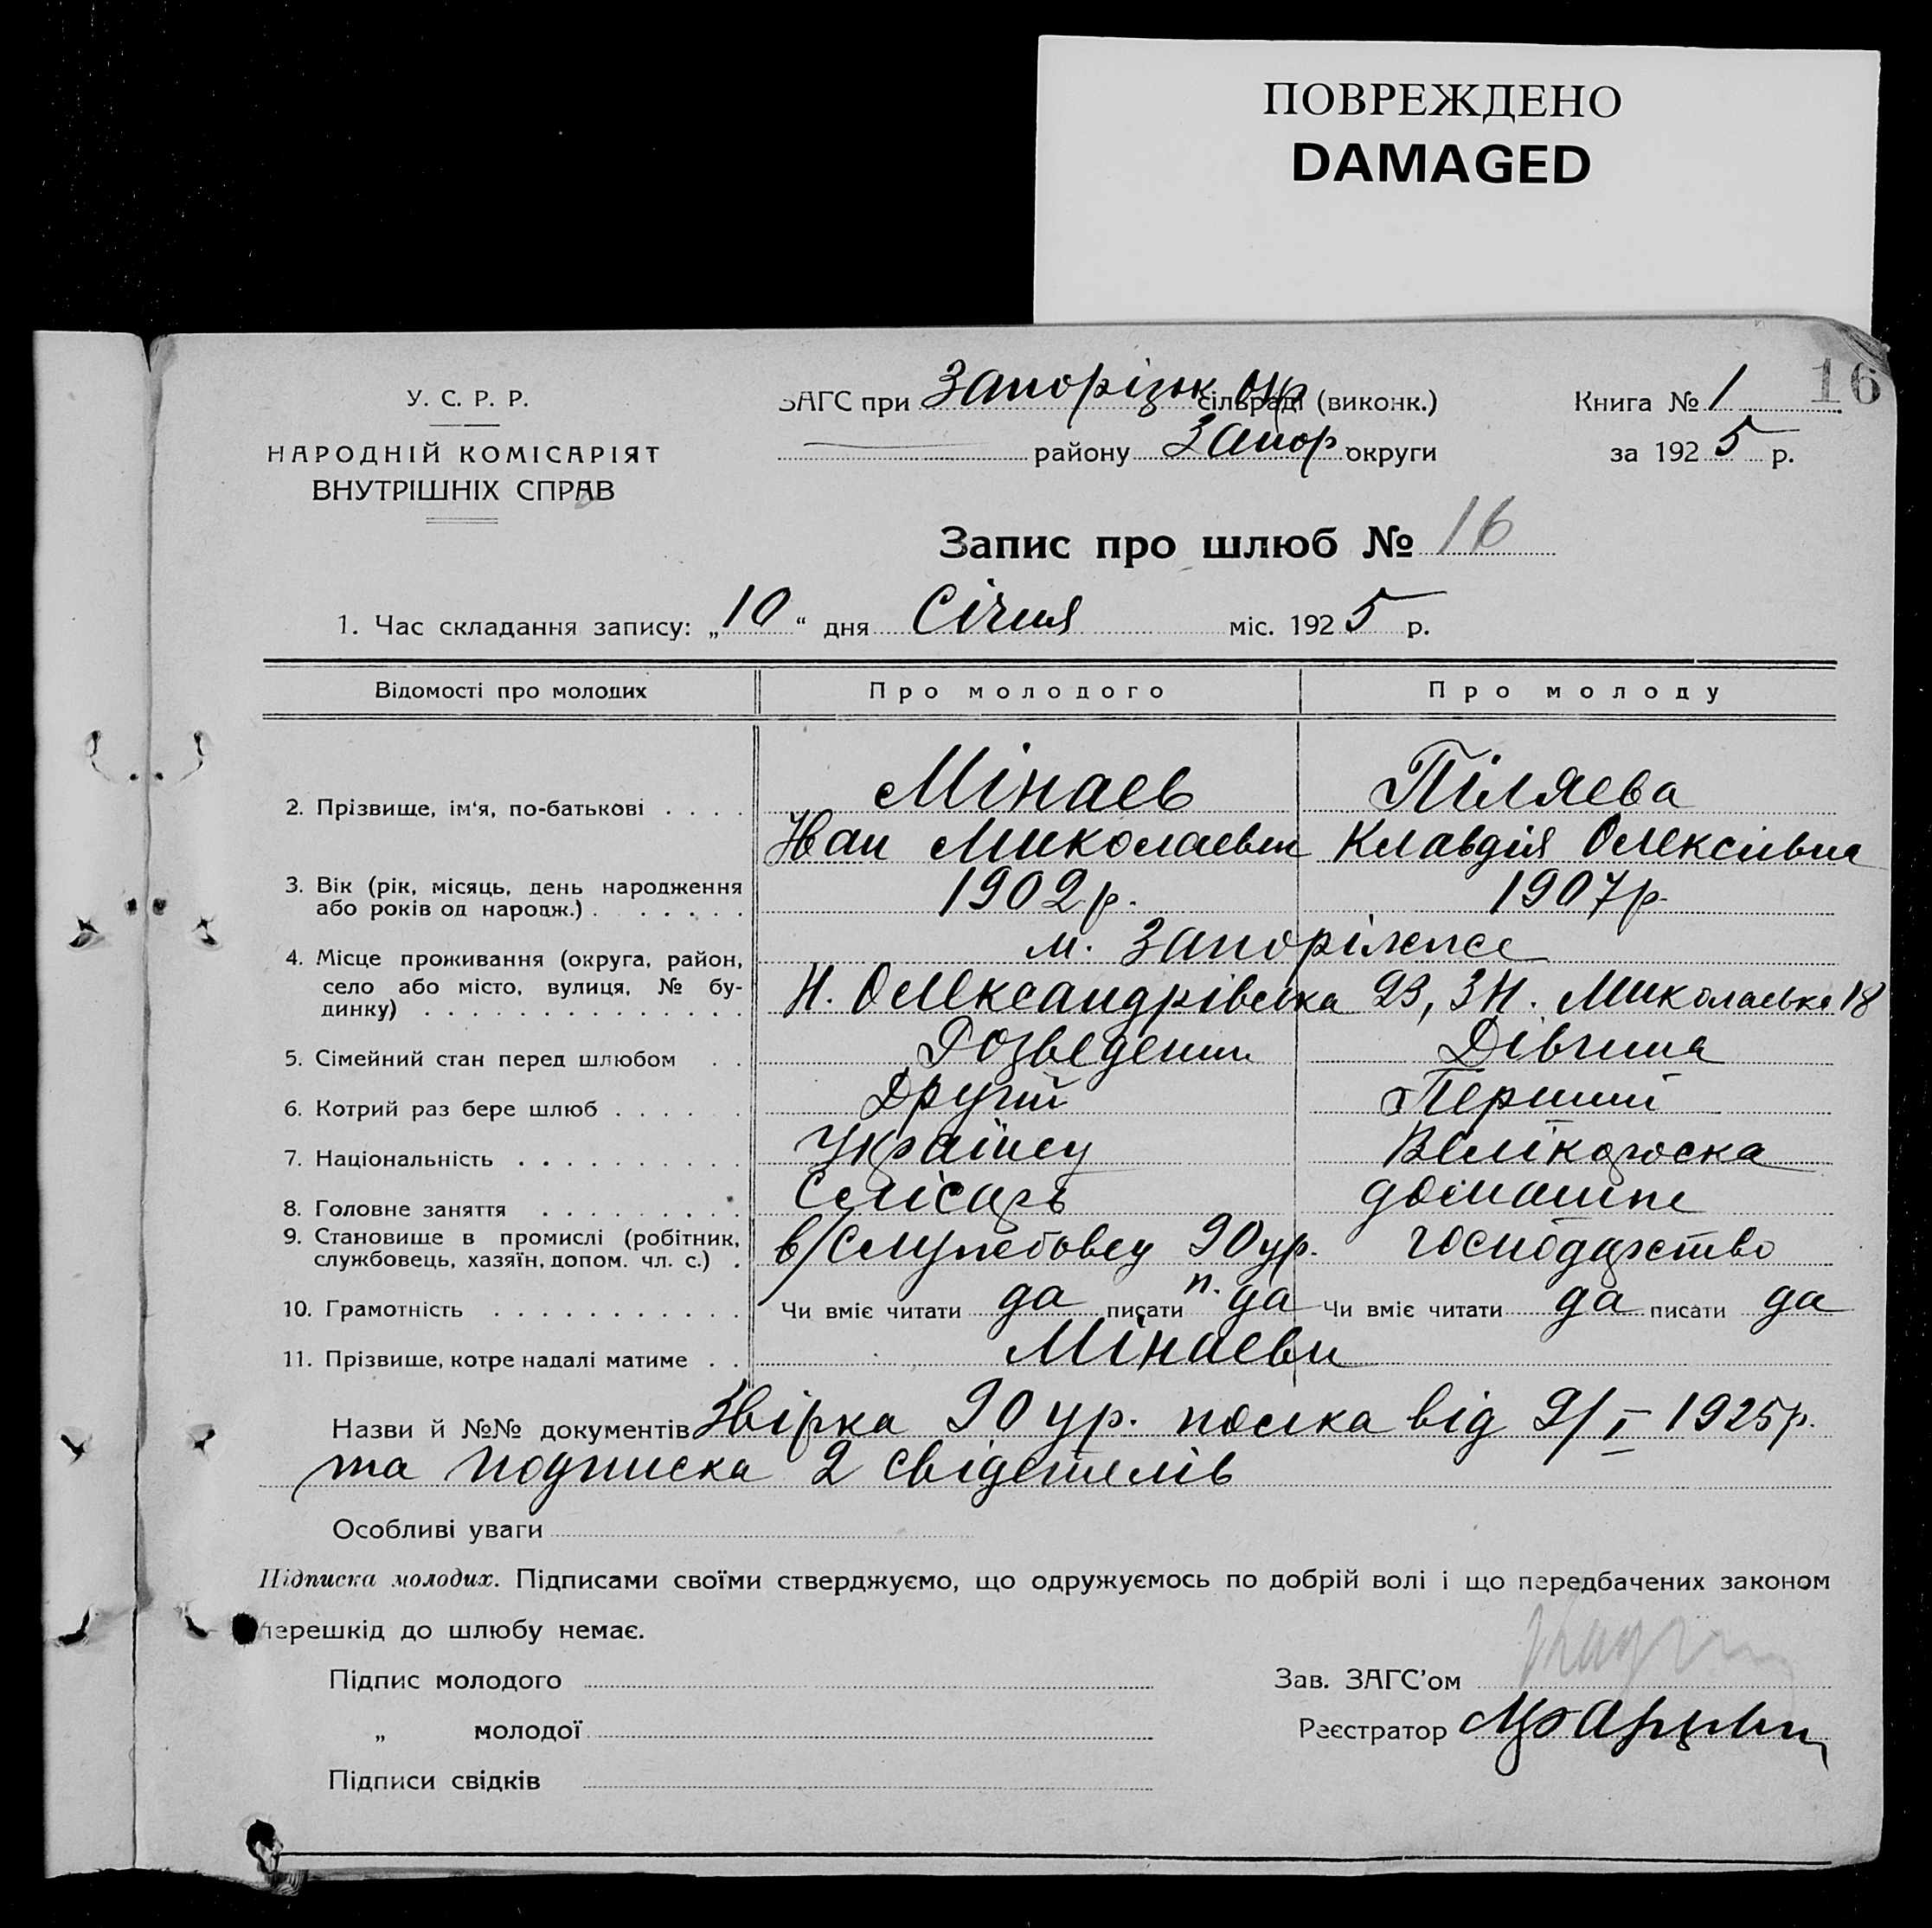 ПОВРЕЖДЕНО
DAMAGED
16
У. С. Р. Р.
НАРОДНІЙ КОМІСАРІЯТ
ВНУТРІШНІХ СПРАВ
ЗАГС при Запоріжк Окр сільраді (виконк.)
району Запор округи
Книга № 1
за 1925 р.
Запис про шлюб № 16
1. Час складання запису: „10“ дня Січня міс. 1925 р.
Відомості про молодих Про молодого Про молоду
2. Прізвище, ім‘я, по-батькові . . . . Мінаев Піляева
Іван Миколаевич Клавдія Олексіівна
3. Вік (рік, місяць, день народження
або років од народж.) . . . . . . 1902 р. 1907 р.
4. Місце проживання (округа, район, м. Запоріжже
село або місто, вулиця, № бу-
динку) . . . . . . . . . . . . . Н. Олександрівська 23, Миколаевке 18
5. Сімейний стан перед шлюбом . . Розведений Дівчина
6. Котрий раз бере шлюб . . . . . Другий Перший
7. Національність . . . . . . . . . . Українец Велікороска
8. Головне заняття . . . . . . . . . Слісарь домашне
9. Становище в промислі (робітник,
службовець, хазяїн, допом. чл. с.) . в/Служебовец 90 ур. п. господарство
10. Грамотність . . . . . . . . . . . Чи вміє читати да писати да Чи вміє читати да писати да
11. Прізвище, котре надалі матиме . . Мінаеви
Назви й №№ документів Звірка 90 ур. полка від 9/I 1925 р.
та подписка 2 свідетелів
Особливі уваги
Підписка молодих. Підписами своїми стверджуємо, що одружуємось по добрій волі і що передбачених законом
перешкід до шлюбу немає.
Підпис молодого
„ молодої
Підписи свідків
Зав. ЗАГС’ом
Реєстратор